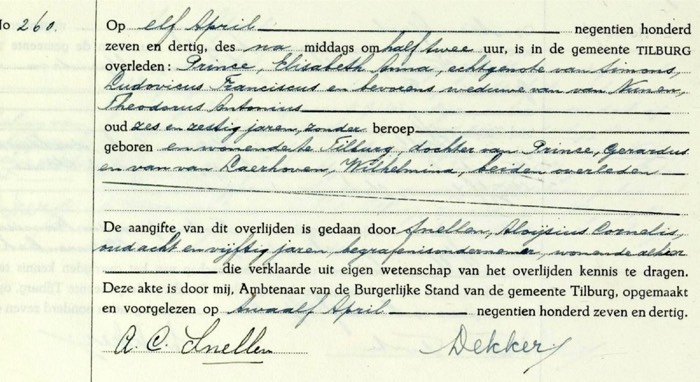 No 260.
Op elf April negentien honderd
zeven en dertig, des na middags om half twee uur, is in de gemeente TILBURG
overleden: Prince, Elisabeth Anna, echtgenote van Simons,
Ludovicus Franciscus en bevorens weduwe van van Nunen,
Theodorus Antonius
oud zes en zestig jaren, zonder beroep
geboren en wonende te Tilburg, dochter van Prince, Gerardus
en van van Laerhoven, Wilhelmina, beiden overleden
De aangifte van dit overlijden is gedaan door Snellen, Aloijsius Cornelis,
oud acht en vijftig jaren, begrafenisondernemer, wonende alhier
die verklaarde uit eigen wetenschap van het overlijden kennis te dragen.
Deze akte is door mij, Ambtenaar van de Burgerlijke Stand van de gemeente Tilburg, opgemaakt
en voorgelezen op twaalf April negentien honderd zeven en dertig.
A. C. Snellen Dekker